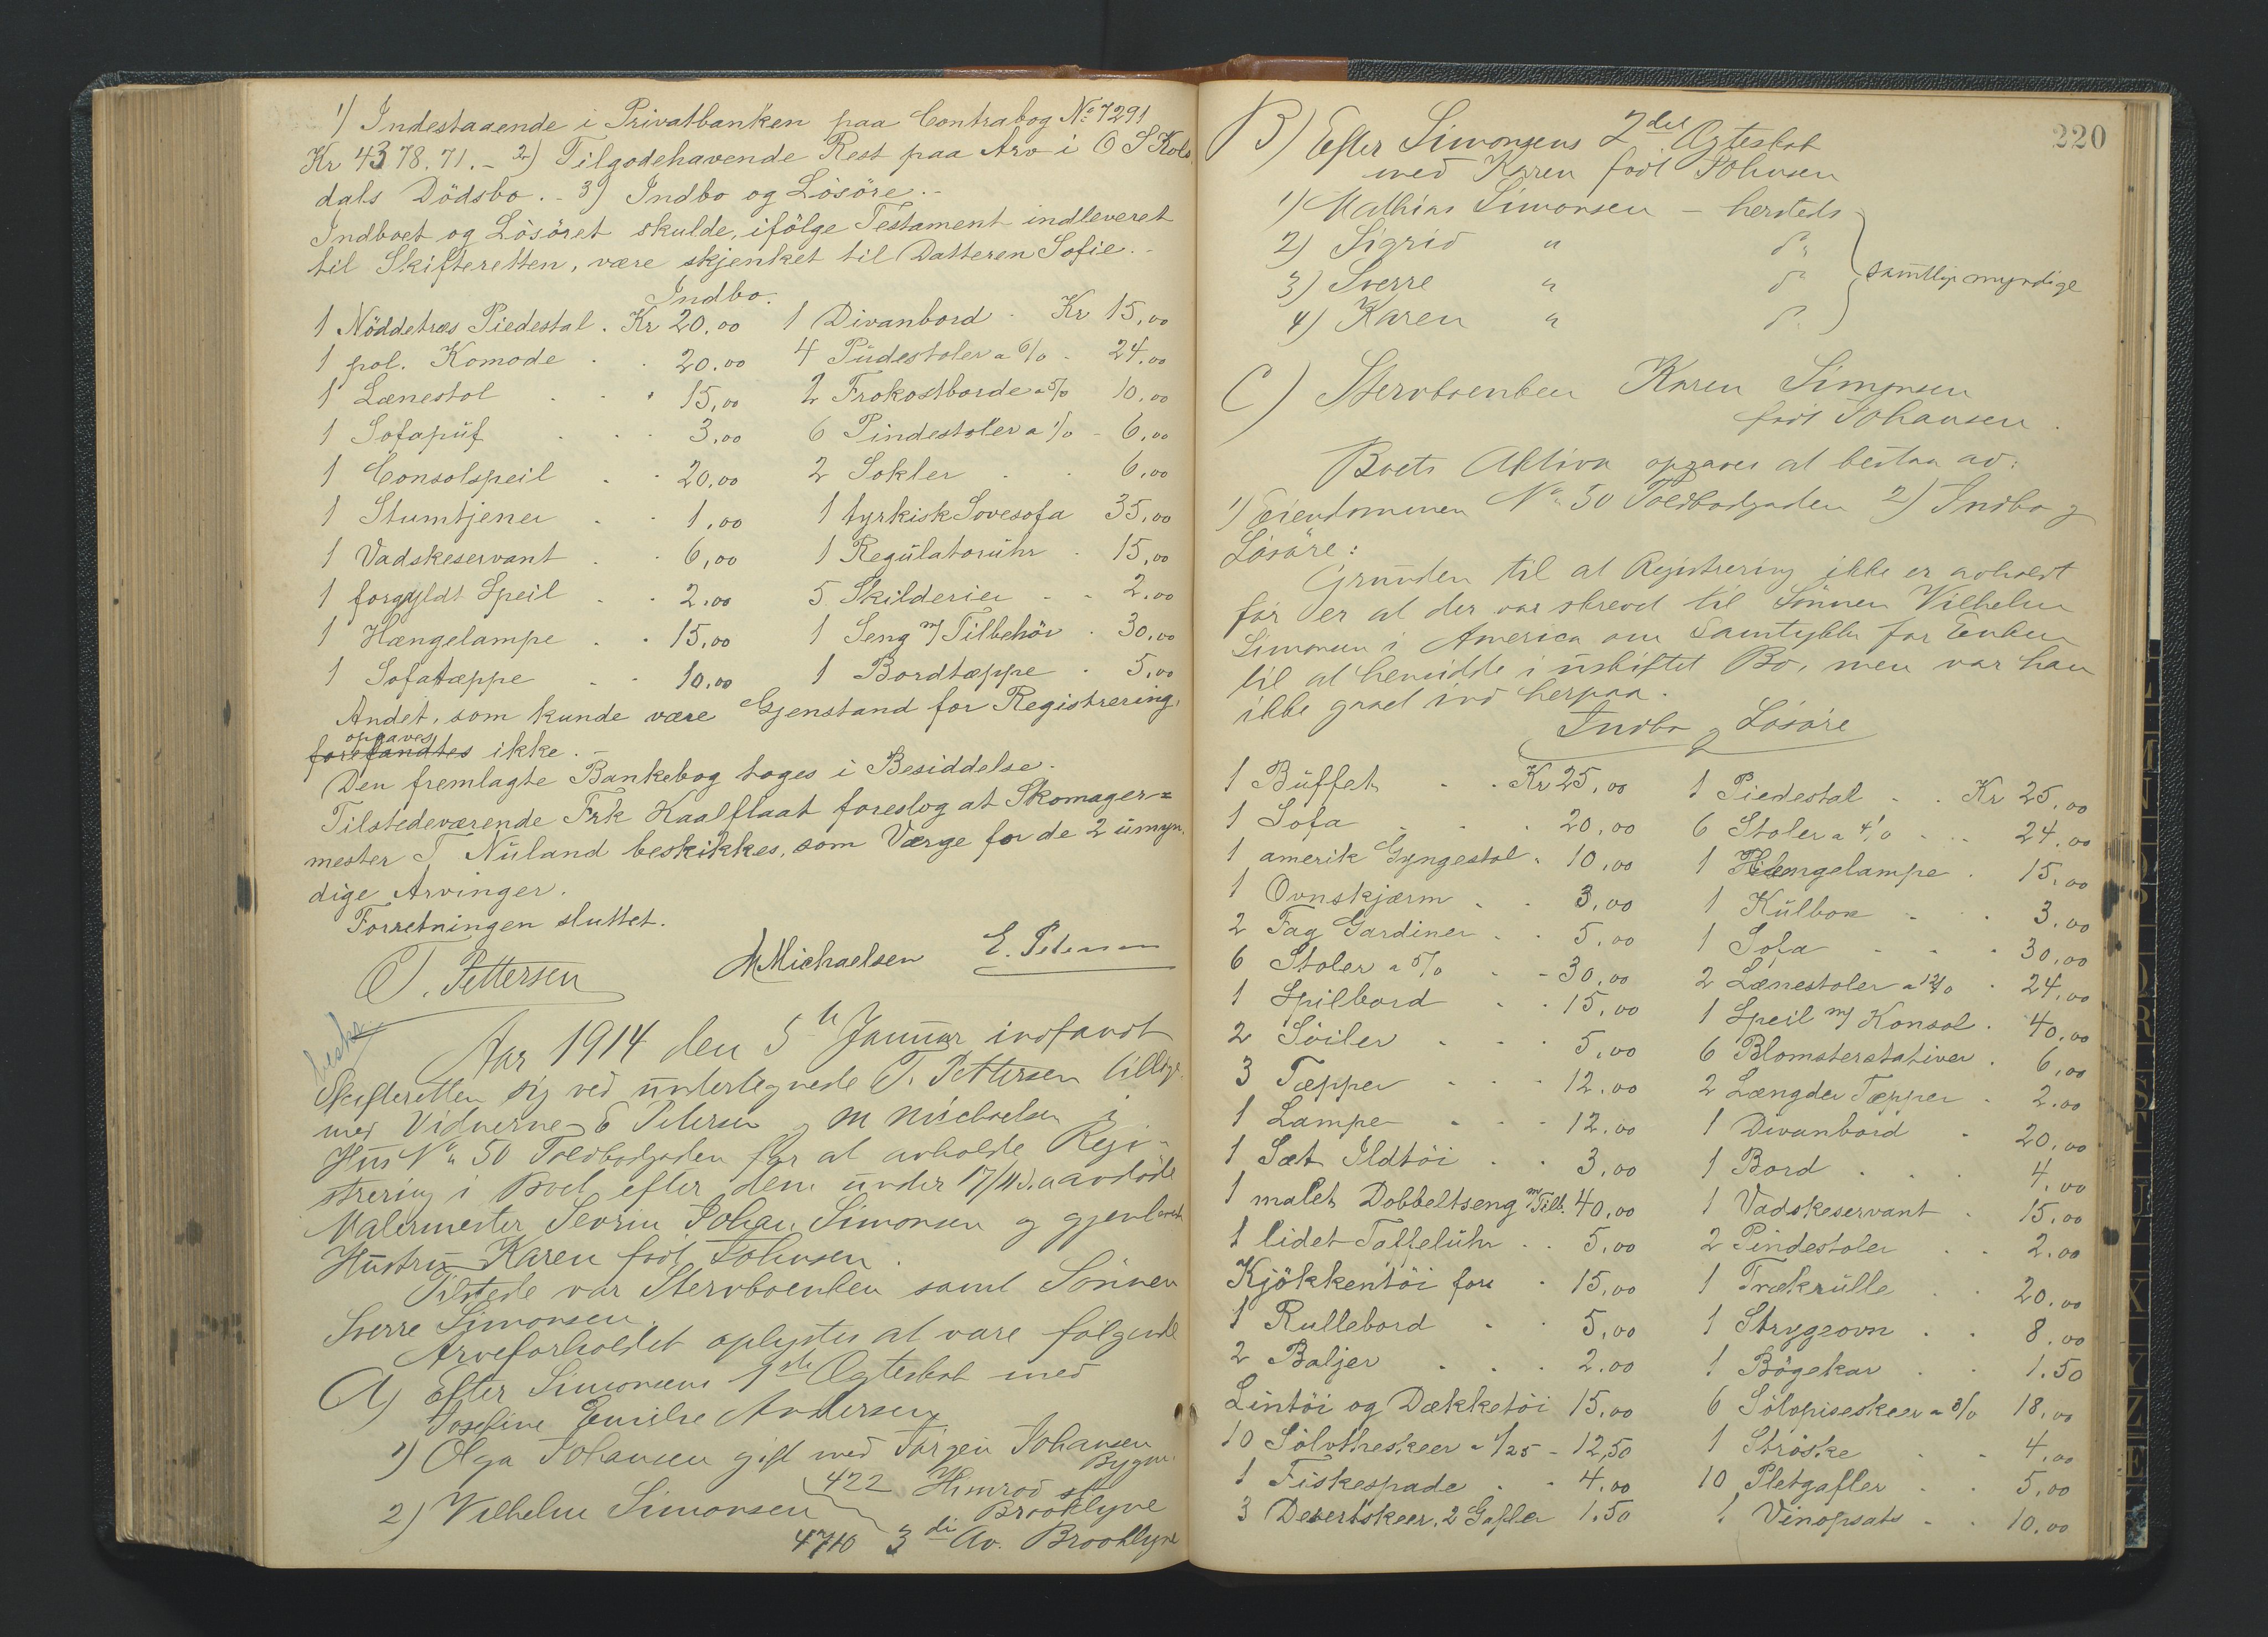 1) Indestaaende i Privatbanken paa Contrabog No 7291
Kr 4378.71. - 2) Tilgodehavende Rest paa Arv i O S Kols
dals Dödsbo. - 3) Indbo og Lösöre. -
Indboet og Lösöret skulde, ifölge Testament indleveret
til Skifteretten, være skjenket til Datteren Sofie. -
Indbo.
1 Nöddetræs Piedestal . Kr 20,00 1 Divanbord - Kr 15,00
1 pol. Komode . . 20.00 4 Püdestoler a 6/0 - 24.00
1 Lænestol . . . 15,00 2 Frokostborde a 5/0 10,00
1 Sofapüf . . . 3,00 6 Pindestoler a 1/0 - 6,00
1 Consolspeil . . 20,00 2 Sokler . . 6,00
1 Stumtjener . . 1,00 1 tyrkisk Sovesofa 35,00
1 Vadskeservant . . 6,00 1 Regülatorühr . 15,00
1 forgyldt Speil . . 2.00 5 Skilderier - - 2.00
1 Hængelampe . . 15,00 1 Seng m/ Tilbehör . 30,00
1 Sofatæppe . . 10.00 1 Bordtæppe . 5,00
Andet, som kunde være Gjenstand for Registrering,
opgaves
forefandtes ikke. -
Den fremlagte Bankebog toges i Besiddelse.
Tilstedeværende Frk Kaalflaat foreslog at Skomager=
mester T. Nüland beskikkes, som Værge for de 2 ümyn.
dige Arvinger.
Forretningen sluttet.
T. Pettersen M Michaelsen E. Petersen
Aar 1914 den 5te Januar indfandt
Skifteretten sig ved undertegnede T. Pettersen tillige
med Vidnerne E Petersen og M Michaelsen i
Hüs No 50 Toldbodgaden for at avholde Regi-
strering i Boet efter den ünder 17/11 d. a avdöde
Malermester Severin Johan Simonsen og gjenlevende
Hüstrü Karen född Johnsen.
Tilstede var Stervboenken samt Sönnen
Sverre Simonsen.
Arveforholdet oplystes at være fölgende
A) Efter Simonsens 1ste Ægteskab med
Josefine Emilie Andersen
1) Olga Johansen gift med Jörgen Johansen
422 Himrod st
2) Vilhelm Simonsen Brooklyne
4710 3di Av. Brooklyne
220
B) Efter Simonsens 2det Ægteskab
med Karen född Johnsen
1) Mathias Simonsen - hersteds
2) Sigrid " do
3) Sverre " do samtlige myndige
4) Karen " do
C) Stervboenken Karen Simonsen
född Johansen.
Boets Aktiva opgaves at bestaa av:
1) Eiendommen No 50 Toldbodgaden 2) Indbo og
Lösöre:
Grunden til at Registrering ikke er avholdt
för er at der var skrevet til Sönnen Vilhelm
Simonsen i America om Samtykke for Enken
til at hensidde i uskiftet Bo, men var han
ikke gaaet ind herpaa.
Indbo og Lösöre
1 Büffet . . Kr 25,00 1 Piedestal . . Kr 25,00
1 Sofa . . . 20,00 6 Stoler a 4/0 . . 24,00
1 amerik Gyngestol . 10,00 1 Hængelampe . 15,00
1 Ovnskjærm . . 3,00 1 Külbox . . 3,00
2 Fag Gardiner . . 5,00 1 Sofa . . . 30,00
6 Stoler a 5/0 . . 30,00 2 Lænestoler a 12/0 . 24,00
1 Spilbord . . 15,00 1 Speil m/ Konsol . 40,00
2 Söiler . . . 5,00 6 Blomsterstativer . 6,00
3 Tæpper . . . 12.00 2 Længder Tæpper . 2.00
1 Lampe . . . 12.00 1 Divanbord . 20,00
1 Sæt Ildtöi . . 3,00 1 Bord . . . 4,00
1 malet Dobbeltseng m/ Tilb. 40,00 1 Vadskeservant . 15,00
1 lidet Taffelühr . . 5,00 2 Pindestoler . . 2.00
Kjökkentöi for . 15,00 1 Trækrülle . . 20.00
1 Rullebord . . 5,00 1 Strygeovn . . 8.00
2 Baljer . . . 2.00 1 Bögekar . . 1.50
Lintöi og Dækketöi 15,00 6 Sölvspiseskeer a 3/0 18,00
10 Sölvtheskeer a 1/25 - 12,50 1 Ströske . . 4,00
1 Fiskespade . . 4.00 10 Pletgafler . . 5,00
3 Desertskeer, 2 Gafler 1.50 1 Vinopsats . . 10,00